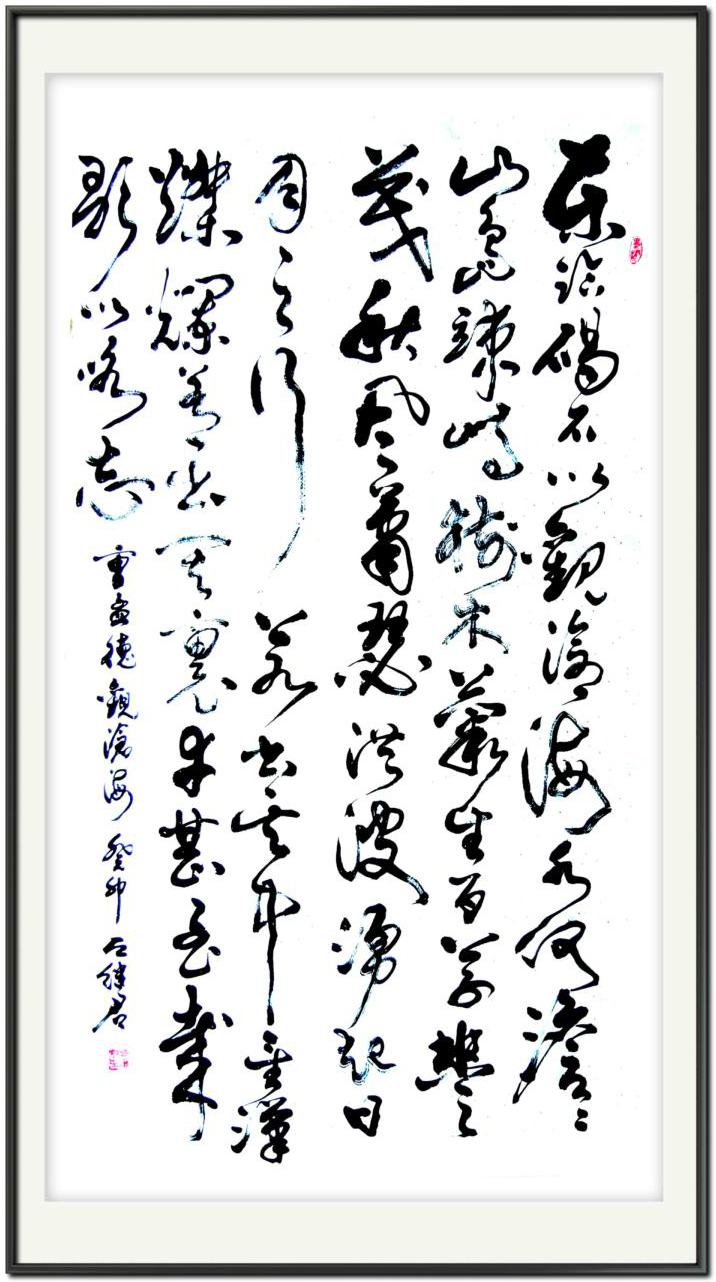 東臨碣石以觀滄海水何澹〻
山島竦峙樹木叢生百草豐
茂秋風蕭瑟洪波湧起日
月之行若出其中星漢
燦爛若出其裏幸甚至哉
歌以咏志
曹孟德觀滄海 癸卯